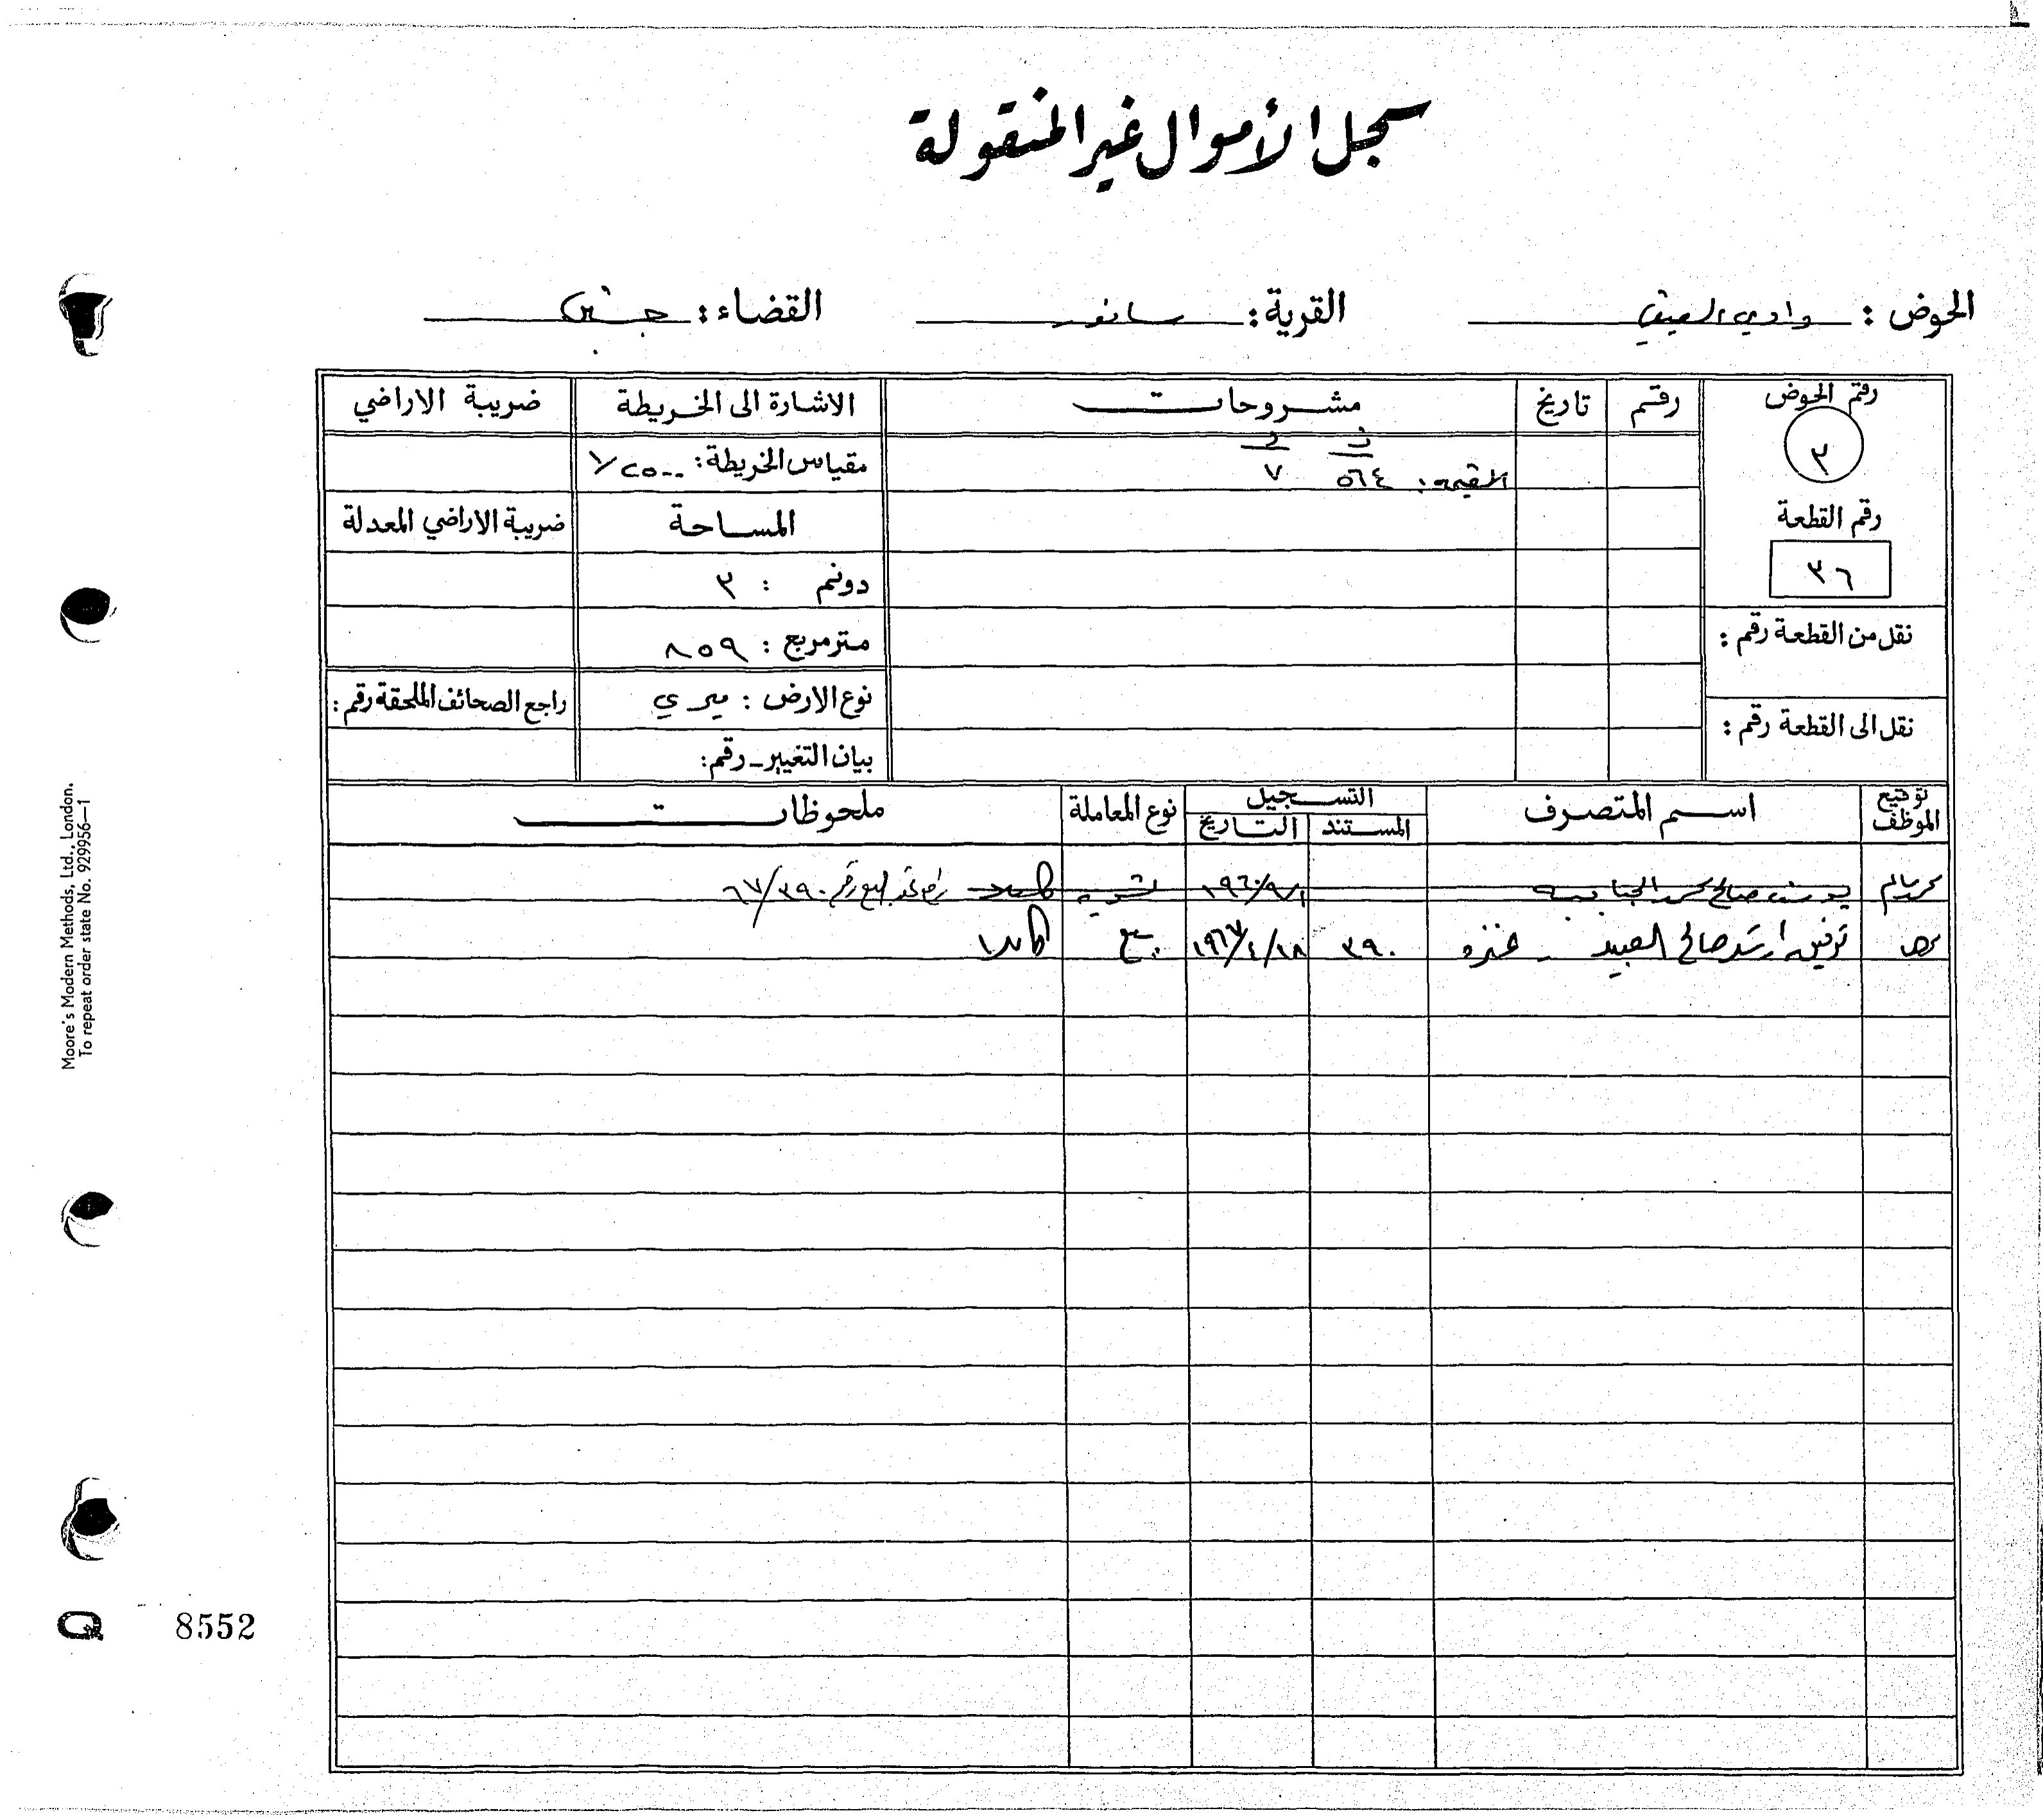 سجل الأموال غير المنقولة
الحوض : وادي القرية : سانور القضاء : جنين
رقم الحوض رقم تاريخ مشروحات الاشارة الى الخريطة ضريبة الاراضي
٣
ف د
القيمة: ٥٦٤ ٧
مقياس الخريطة: ١/٢٥٠٠
رقم القطعة المساحة ضريبة الاراضي المعدلة
٣٦
دونم : ٣
نقل من القطعة رقم : متر مربع : ٨٥٩
نوع الارض : ميري راجع الصحائف الملحقة رقم :
نقل الى القطعة رقم :
بيان التغيير - رقم:
توقيع الموظف اسم المتصرف التسجيل نوع المعاملة ملحوظات
المستند التاريخ
يوسف صالح محمد ١٩٦٠/٩/١ تسوية كاملا رقم ٦٧/٣٩٠
توفيق ارشد صالح العبيد - عنزه ٣٩٠ ١٩٦٧/٤/١٨ بيع كاملا
Moore's Modern Methods, Ltd., London.
To repeat order state No. 929956—1
Q 8552